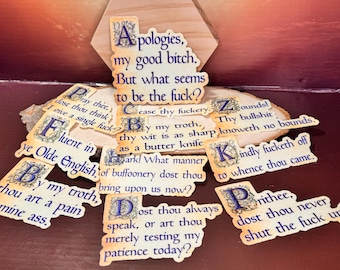 Apologies,
my good bitch.
But what seems
to be the fuck?
Pray thee,
dost thou think I
give a single fuck?
Cease thy fuckery
Zounds!
Thy bullshit
knoweth no bounds.
Fluent in
ye Olde English,
By my troth,
thy wit is as sharp
as a butter knife
Hark! What manner
of buffoonery dost thou
bring upon us now?
Kindly fucketh off
whence thou came.
By my troth,
thou art a pain
mine ass.
Dost thou always
speak, or art thou
merely testing my
patience today?
Prithee,
dost thou never
shut the fuck up